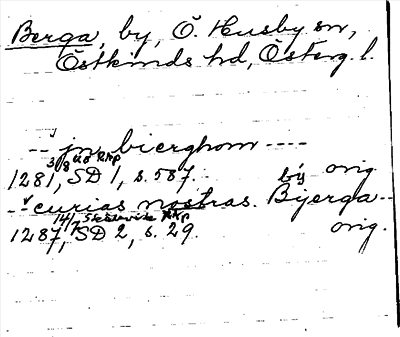 Berga, by, Ö. Husby sn,
Östkinds hd, Österg. l.
-- jn bierghom ----
3/8 uo Rkp
1281, SD 1, s. 587. orig
by
-- curias nostras. Bijerga --
14/7 Skälvik Rkp
1287, SD 2, s. 29. orig.